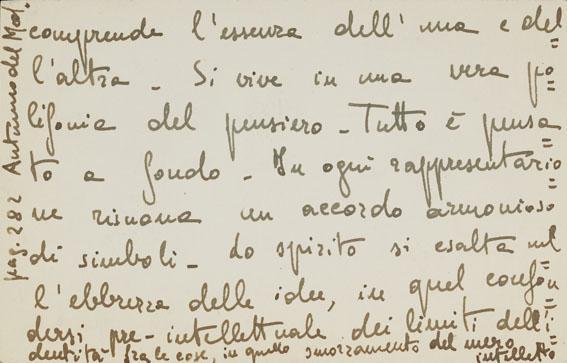 comprende l'essenza dell'una e del
l'altra - Si vive in una vera po=
lifonia del pensiero - Tutto è pensa=
to a fondo - In ogni rappresentazio=
ne risuona un accordo armonioso
di simboli - Lo spirito si esalta nel=
l'ebbrezza delle idee, in quel confon=
dersi pre-intellettuale dei limiti dell'i=
dentità fra le cose, in quello smorzamento del mero
intelletto
pag. 282 Autunno del Med.